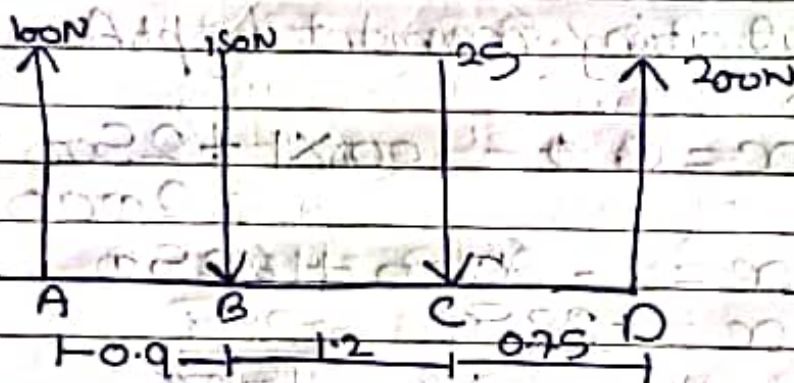 100N 150N 25 200N
A B C D
0.9 1.2 0.75